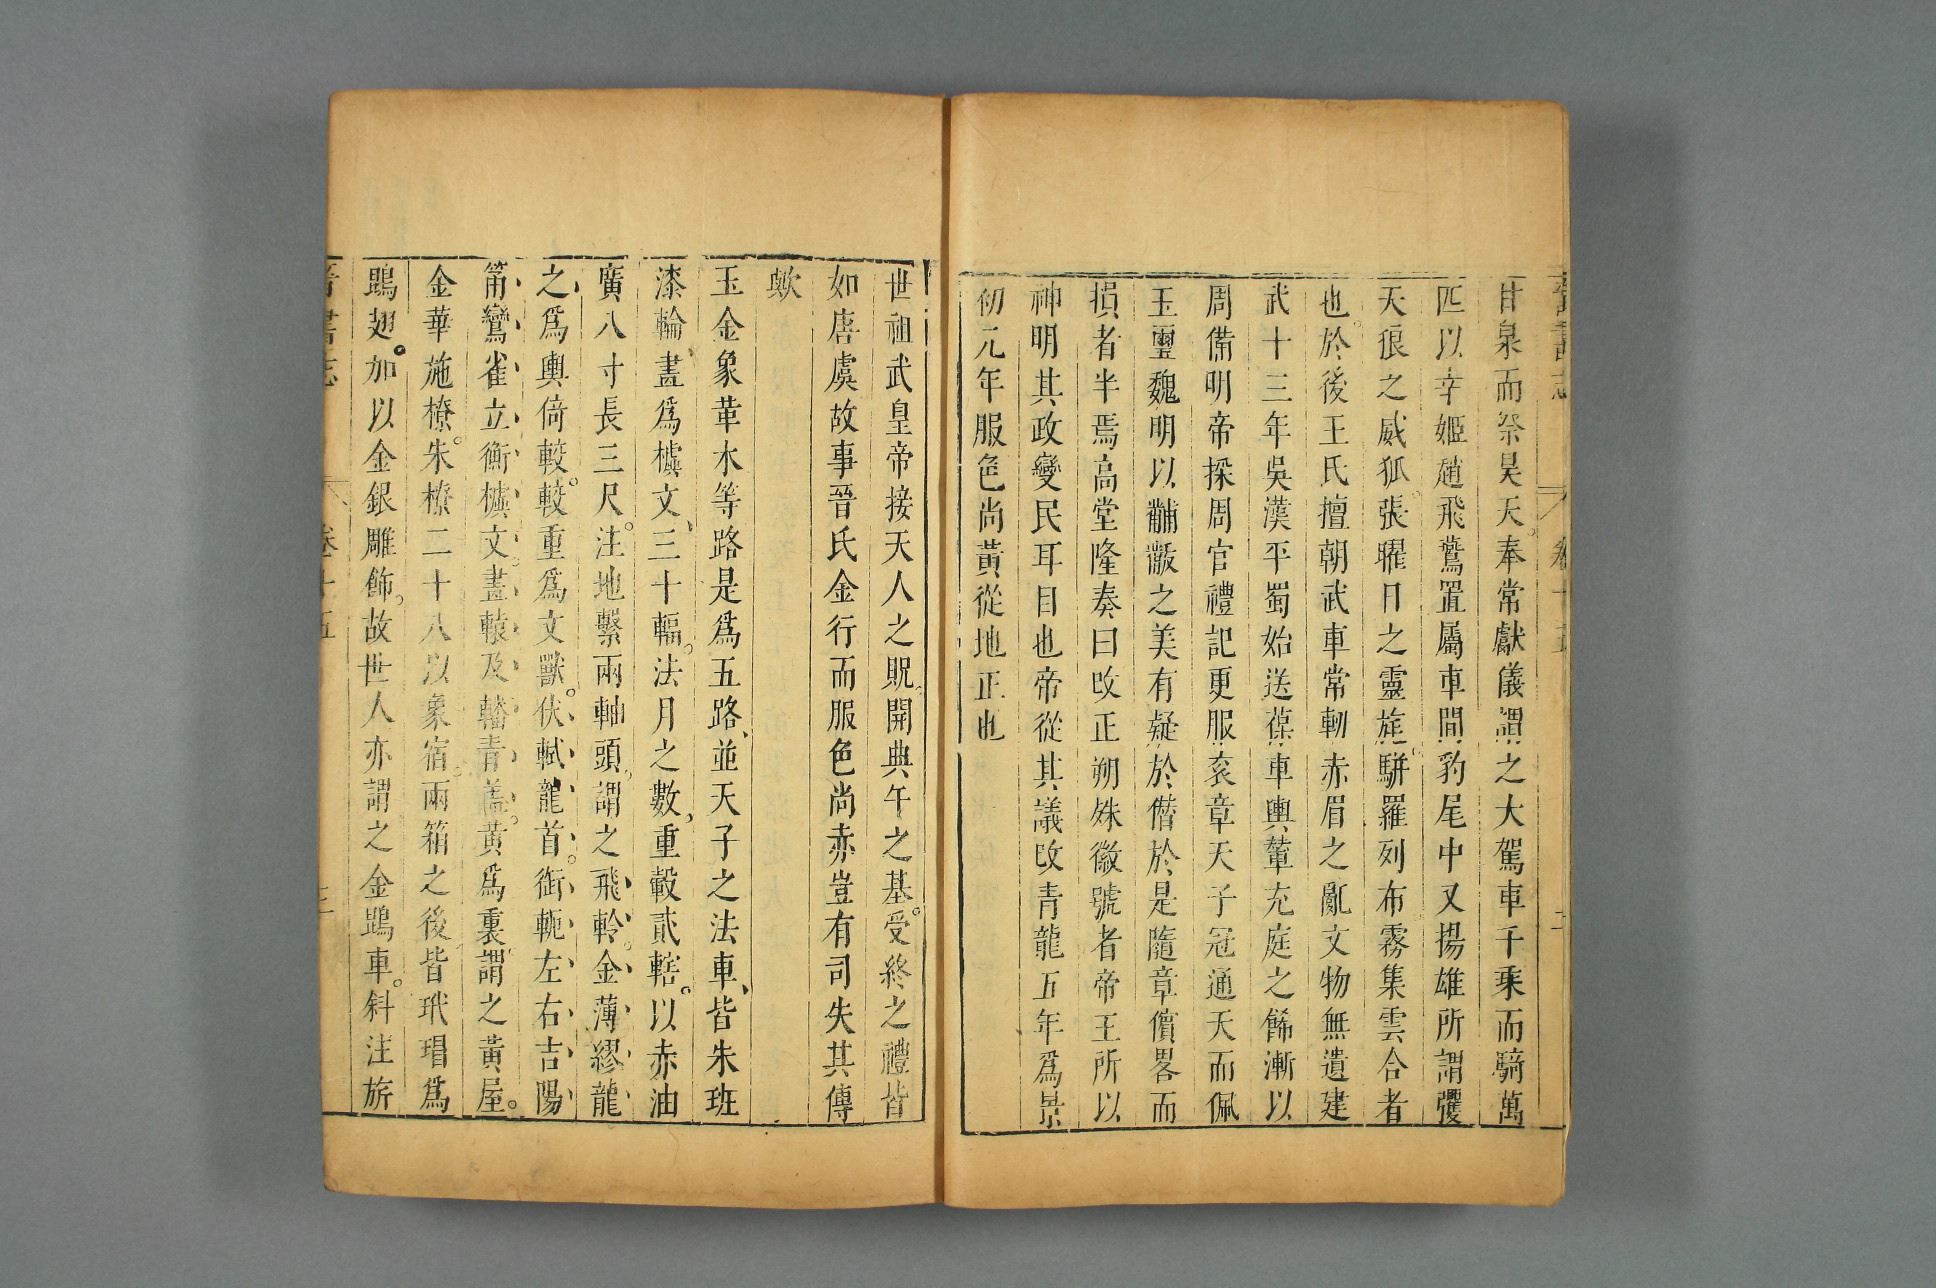 晉書志 卷十五 二
甘泉而祭昊天奉常獻儀謂之大駕車千乘而騎萬
匹以幸姬趙飛鷰置屬車間豹尾中又揚雄所謂彏
天狼之威狐張曜日之靈旄騈羅列布霧集雲合者
也於後王氏擅朝武車常軔赤眉之亂文物無遺建
武十三年吳漢平蜀始送葆車輿輦充庭之餙漸以
周備明帝採周官禮記更服衮章天子冠通天而佩
玉璽魏明以黼黻之美有疑於僭於是隨章儐畧而
損者半焉高堂隆奏曰改正朔殊徽號者帝王所以
神明其政變民耳目也帝從其議改青龍五年爲景
初元年服色尚黃從地正也
世祖武皇帝接天人之貺開典午之基受終之禮皆
如唐虞故事晉氏金行而服色尚赤豈有司失其傳
歟
玉金象革木等路是爲五路並天子之法車皆朱班
漆輪畫爲櫎文三十輻法月之數重轂貳轄以赤油
廣八寸長三尺注地繫兩軸頭謂之飛軨金薄繆龍
之爲輿倚較較重爲文獸伏軾龍首銜軛左右吉陽
筩鸞雀立衡櫎文畫轅及轓青蓋黃爲裏謂之黃屋
金華施橑朱橑二十八以象宿兩箱之後皆玳瑁爲
鵾翅加以金銀雕飾故世人亦謂之金鵾車斜注旂
晉書志 卷十五 三